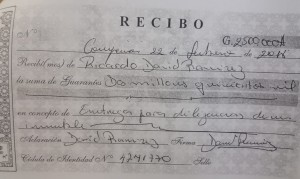 RECIBO
G. 2.500.000
22 de febrero
Recibí(mos) de Ricardo David Ramirez
la suma de Guaraníes Dos millones quinientos mil
en concepto de Entrega por
inmueble
Aclaración David Ramirez Firma
Cédula de Identidad Nº 4741770 Sello